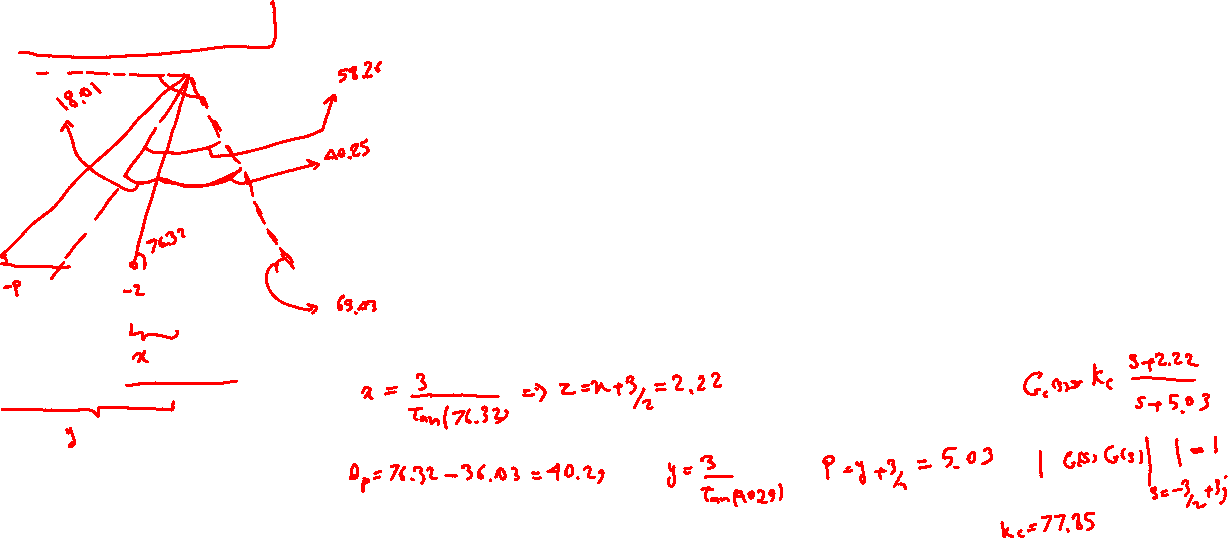 58.26
18.01
40.25
76.32
-P
-2
69.03
x
y
x = 3 / Tan(76.32) => z = x + 3/2 = 2.22
Gc(s) = kc (s+2.22) / (s+5.03)
θp = 76.32 - 36.03 = 40.29
y = 3 / Tan(40.29)
P = y + 3/2 = 5.03
| G(s) G(s) | | = 1
s = -3/2 + 3j
kc = 77.85